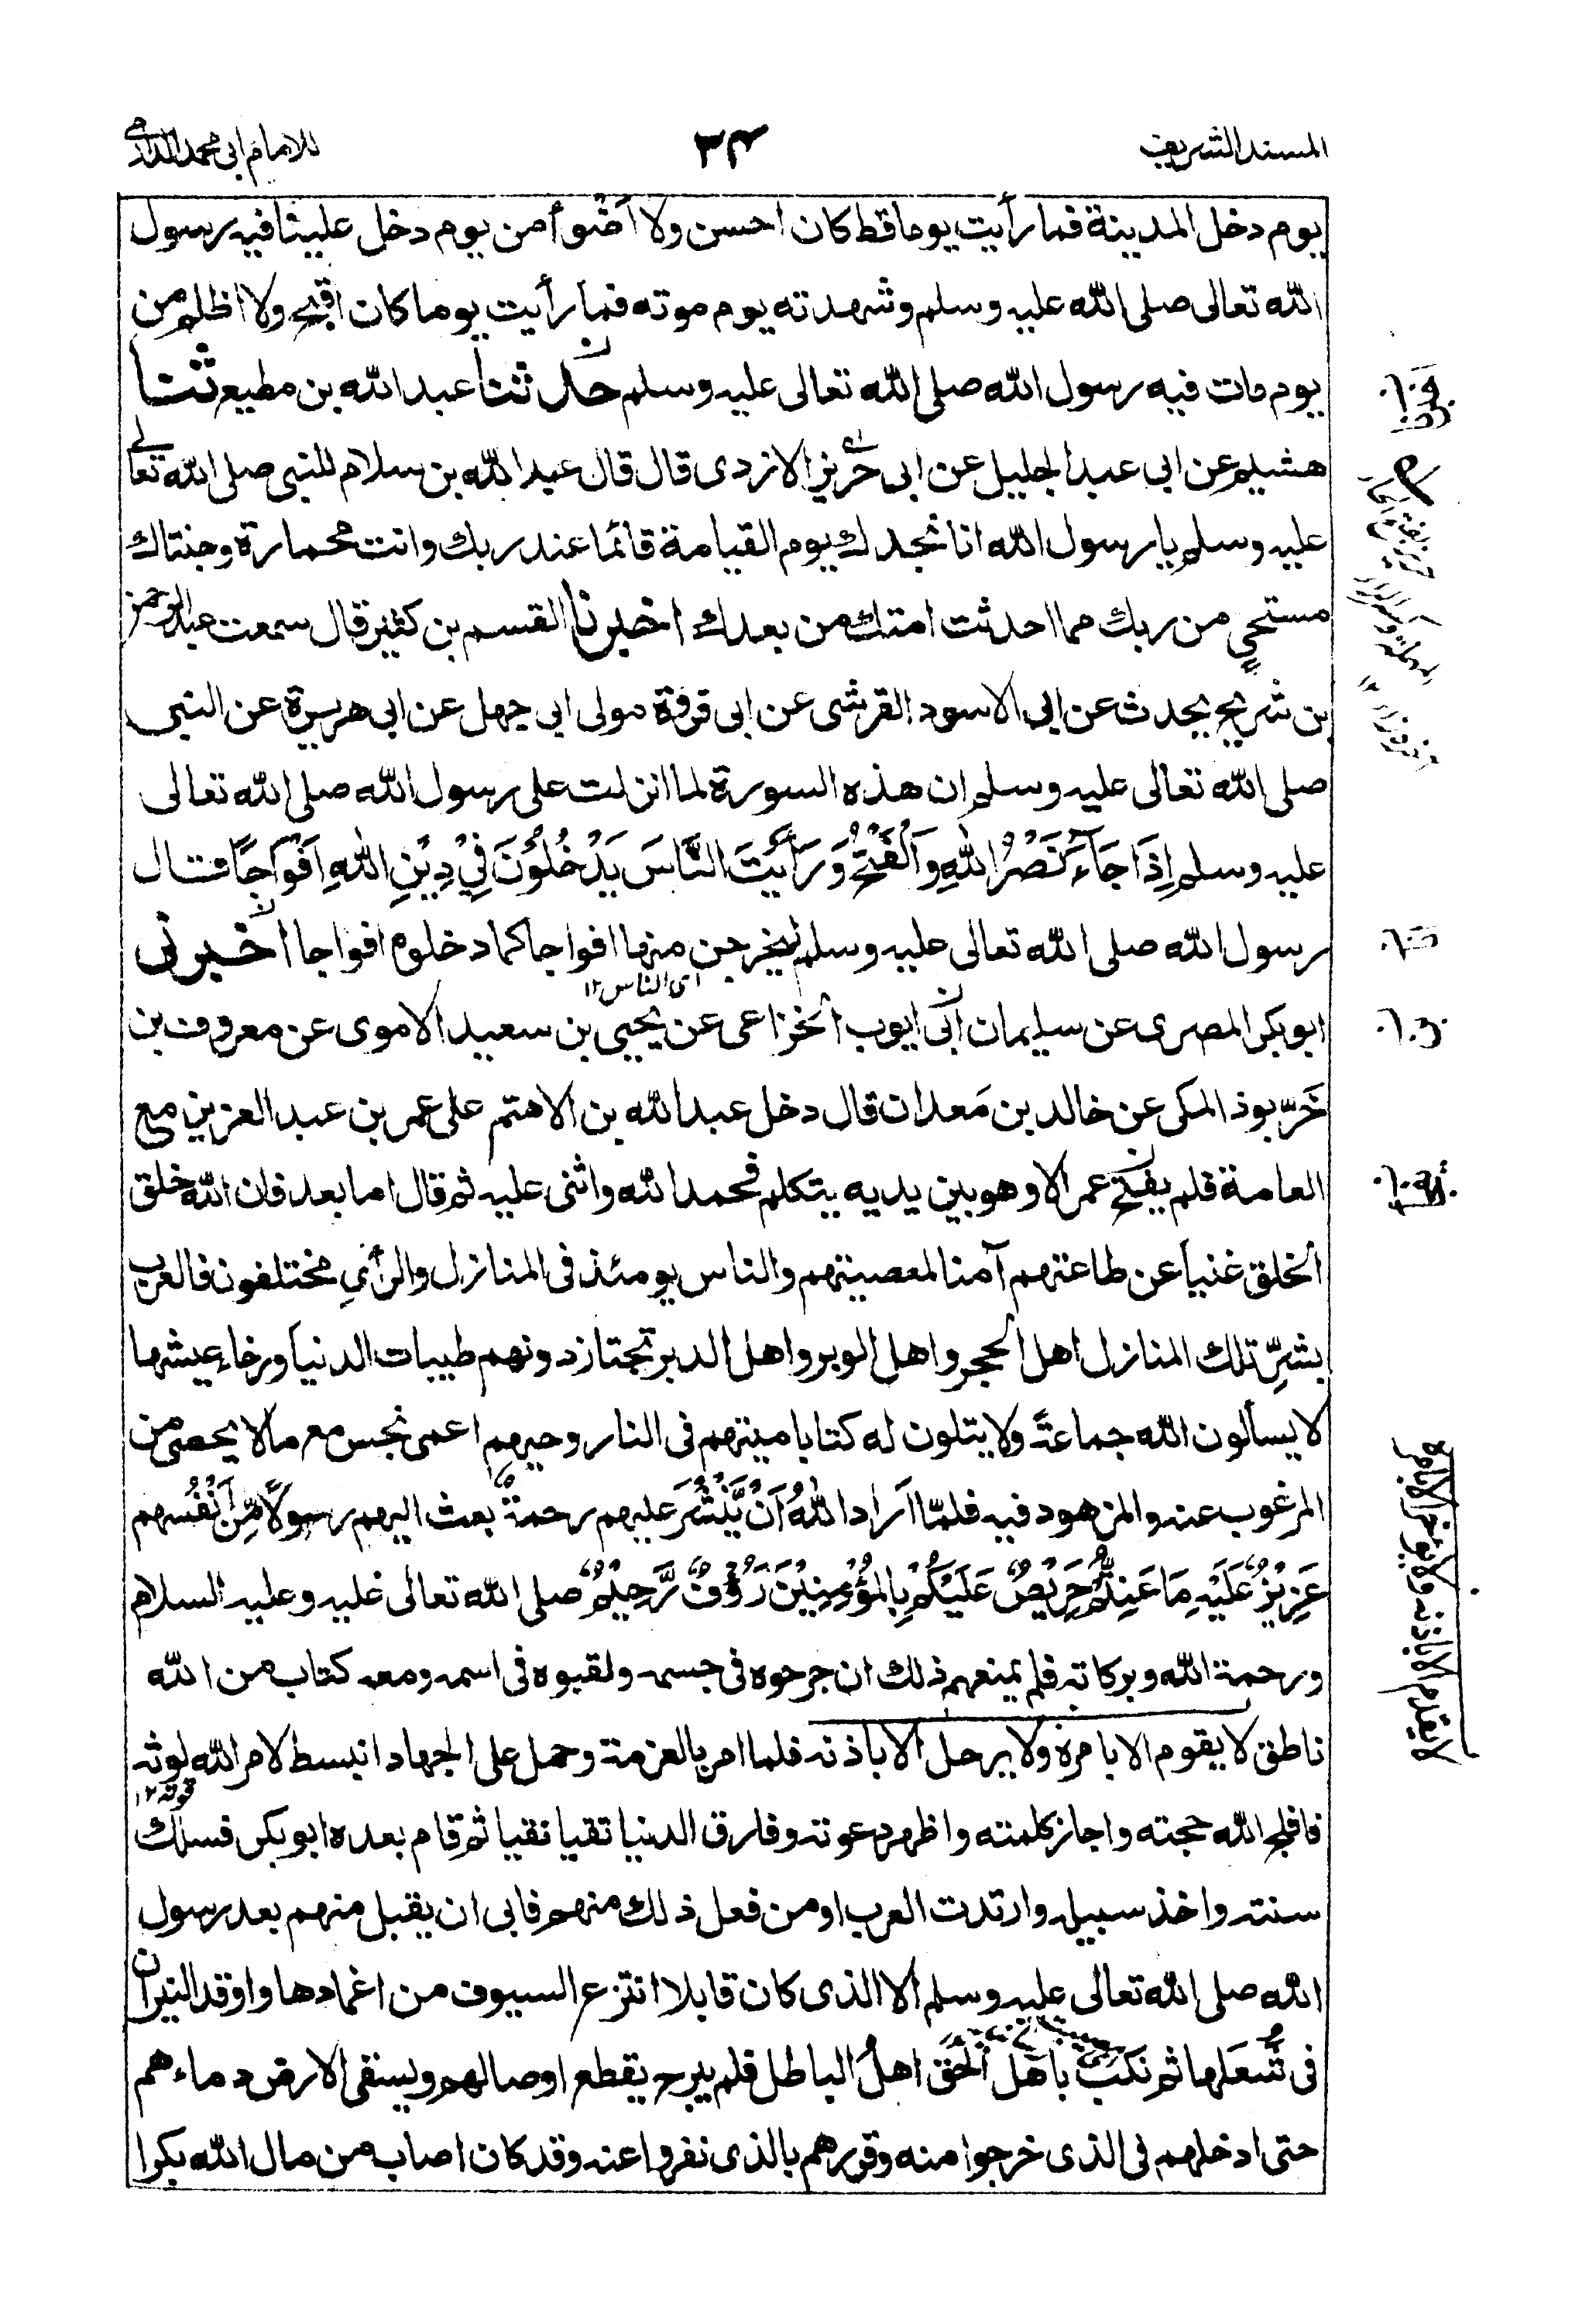 المسند الشريف
٣٤
للامام ابى محمد الدارمى
يوم دخل المدينة فما رأيت يوما قط كان احسن ولا اَضْوأ من يوم دخل علينا فيه رسول
الله تعالى صلى الله عليه وسلم وشهدته يوم موته فما رأيت يوما كان اقبح ولا اظلم من
يوم مات فيه رسول الله صلى الله تعالى عليه وسلم حدثنا عبد الله بن مطيع ثنا
هشيم عن ابى عبد الجليل عن ابى حَريز الازدى قال قال عبد الله بن سلام للنبى صلى الله تعالى
عليه وسلم يا رسول الله انا نجدك يوم القيامة قائما عند ربك وانت محمارة وجنتاك
مستحىٍ من ربك مما احدثت امتك من بعدك اخبرنا القسم بن كثير قال سمعت عبد الرحمن
بن شريح يحدث عن ابى الاسود القرشى عن ابى قرة مولى ابى جهل عن ابى هريرة عن النبى
صلى الله تعالى عليه وسلم ان هذه السورة لما انزلت على رسول الله صلى الله تعالى
عليه وسلم اِذَا جَآءَ نَصْرُ اللّٰهِ وَالْفَتْحُ وَرَأَيْتَ النَّاسَ يَدْخُلُوْنَ فِيْ دِيْنِ اللّٰهِ اَفْوَاجًا فقال
رسول الله صلى الله تعالى عليه وسلم ليخرجن منها افواجا كما دخلوه افواجا اخبرنى
اى الناس ١٢
ابو بكر المصرى عن سليمان ابى ايوب الخزاعى عن يحيى بن سعيد الاموى عن معروف بن
خَرَّبوذ المكى عن خالد بن مَعدان قال دخل عبد الله بن الاهتم على عمر بن عبد العزيز مع
العامة فلم يفجَ عمر الا وهو بين يديه يتكلم فحمد الله واثنى عليه ثم قال اما بعد فان الله خلق
الخلق غنيا عن طاعتهم آمنا لمعصيتهم والناس يومئذ فى المنازل والرأىِ مختلفون فالعرب
بشرِّ تلك المنازل اهل الحجر واهل الوبر واهل الدبر تجتاز دونهم طيبات الدنيا ورخاء عيشها
لا يسألون الله جماعةً ولا يتلون له كتابا ميتهم فى النار وحيهم اعمى نجس مع مالا يحصى من
المرغوب عنه والمزهود فيه فلمّا اَراد اللّٰهُ اَنْ يَّنْشُرَ عليهم رحمةً بعث اليهم رسولًا مِّنْ اَنْفُسهم
عَزِيْزٌ عَلَيْهِ مَا عَنِتُّمْ حَرِيْصٌ عَلَيْكُمْ بِالْمُؤْمِنِيْنَ رَؤُفٌ رَّحِيْمٌ صلى الله تعالى عليه وعليه السلام
ورحمة الله وبركاته فلم يمنعهم ذلك ان جرحوه فى جسمه ولقبوه فى اسمه ومعه كتاب من الله
ناطق لا يقوم الا بامره ولا يرحل الا باذنه فلما امر بالعزمة وحمل على الجهاد انبسط لامر الله لوثه
قوته ١٢
فافلج الله حجته واجاز كلمته واظهر دعوته وفارق الدنيا تقيا نقيا ثم قام بعده ابو بكر فسلك
سنته واخذ سبيله وارتدت العرب او من فعل ذلك منهم فابى ان يقبل منهم بعد رسول
الله صلى الله تعالى عليه وسلم الا الذى كان قابلا انتزع السيوف من اغمادها واوقد النيران
فى شُعَلها ثم نكب باهل الحق اهل الباطل فلم يبرح يقطع اوصالهم ويسقى الارض دماءهم
حتى ادخلهم فى الذى خرجوا منه وقررهم بالذى نفروا عنه وقد كان اصاب من مال الله بكرا